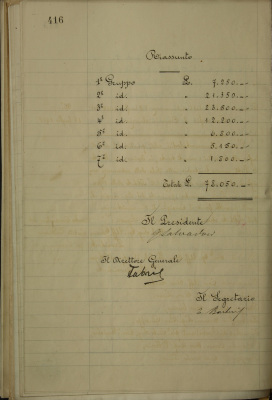 416
Riassunto
1º Gruppo £. 7.250.--
2º id. " 21.750.--
3º id. " 23.800.--
4º id. " 12.200.--
5º id. "
6º id. " 5.150.--
7º id. "
Totale £.
Il Presidente
Il Direttore Generale
Il Segretario